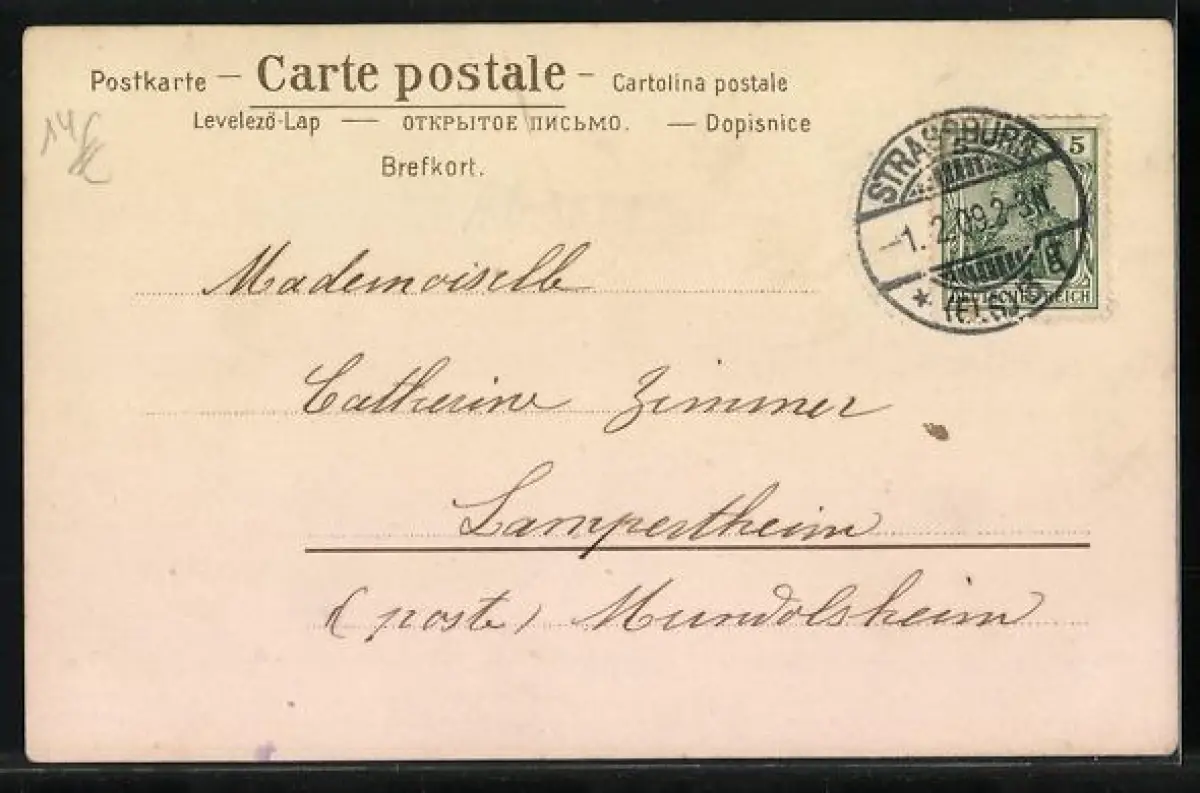 Postkarte — Carte postale — Cartolina postale
Levelező-Lap — ОТКРЫТОЕ ПИСЬМО. — Dopisnice
Brefkort.
STRASSBURG
-1.2.09.2-3N.
* (Els.) 5
5
DEUTSCHES REICH
Mademoiselle
Catherine Zimmer
Lampertheim
(poste) Mundolsheim